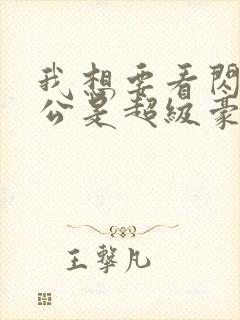 我想要看閃
公是超級豪
王擎凡